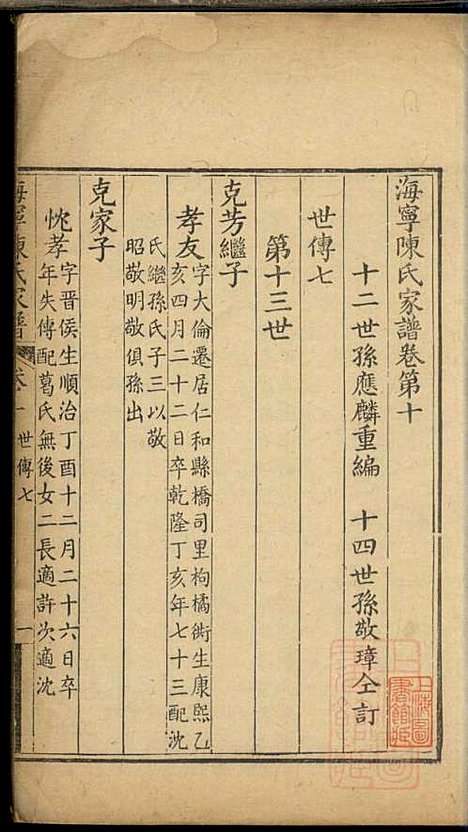 海寧陳氏家譜卷第十
十二世孫應麟重編 十四世孫敬璋仝訂
世傳七
第十三世
克芳繼子
孝友字大倫遷居仁和縣橋司里枸橘衖生康熙乙
亥四月二十二日卒乾隆丁亥年七十三配沈
氏繼孫氏子三以敬
昭敬明敬俱孫出
克家子
忱孝字晉侯生順治丁酉十二月二十六日卒
年失傳配葛氏無後女二長適許次適沈
海寧陳氏家譜 卷十 世傳七 一
上海圖
書館藏